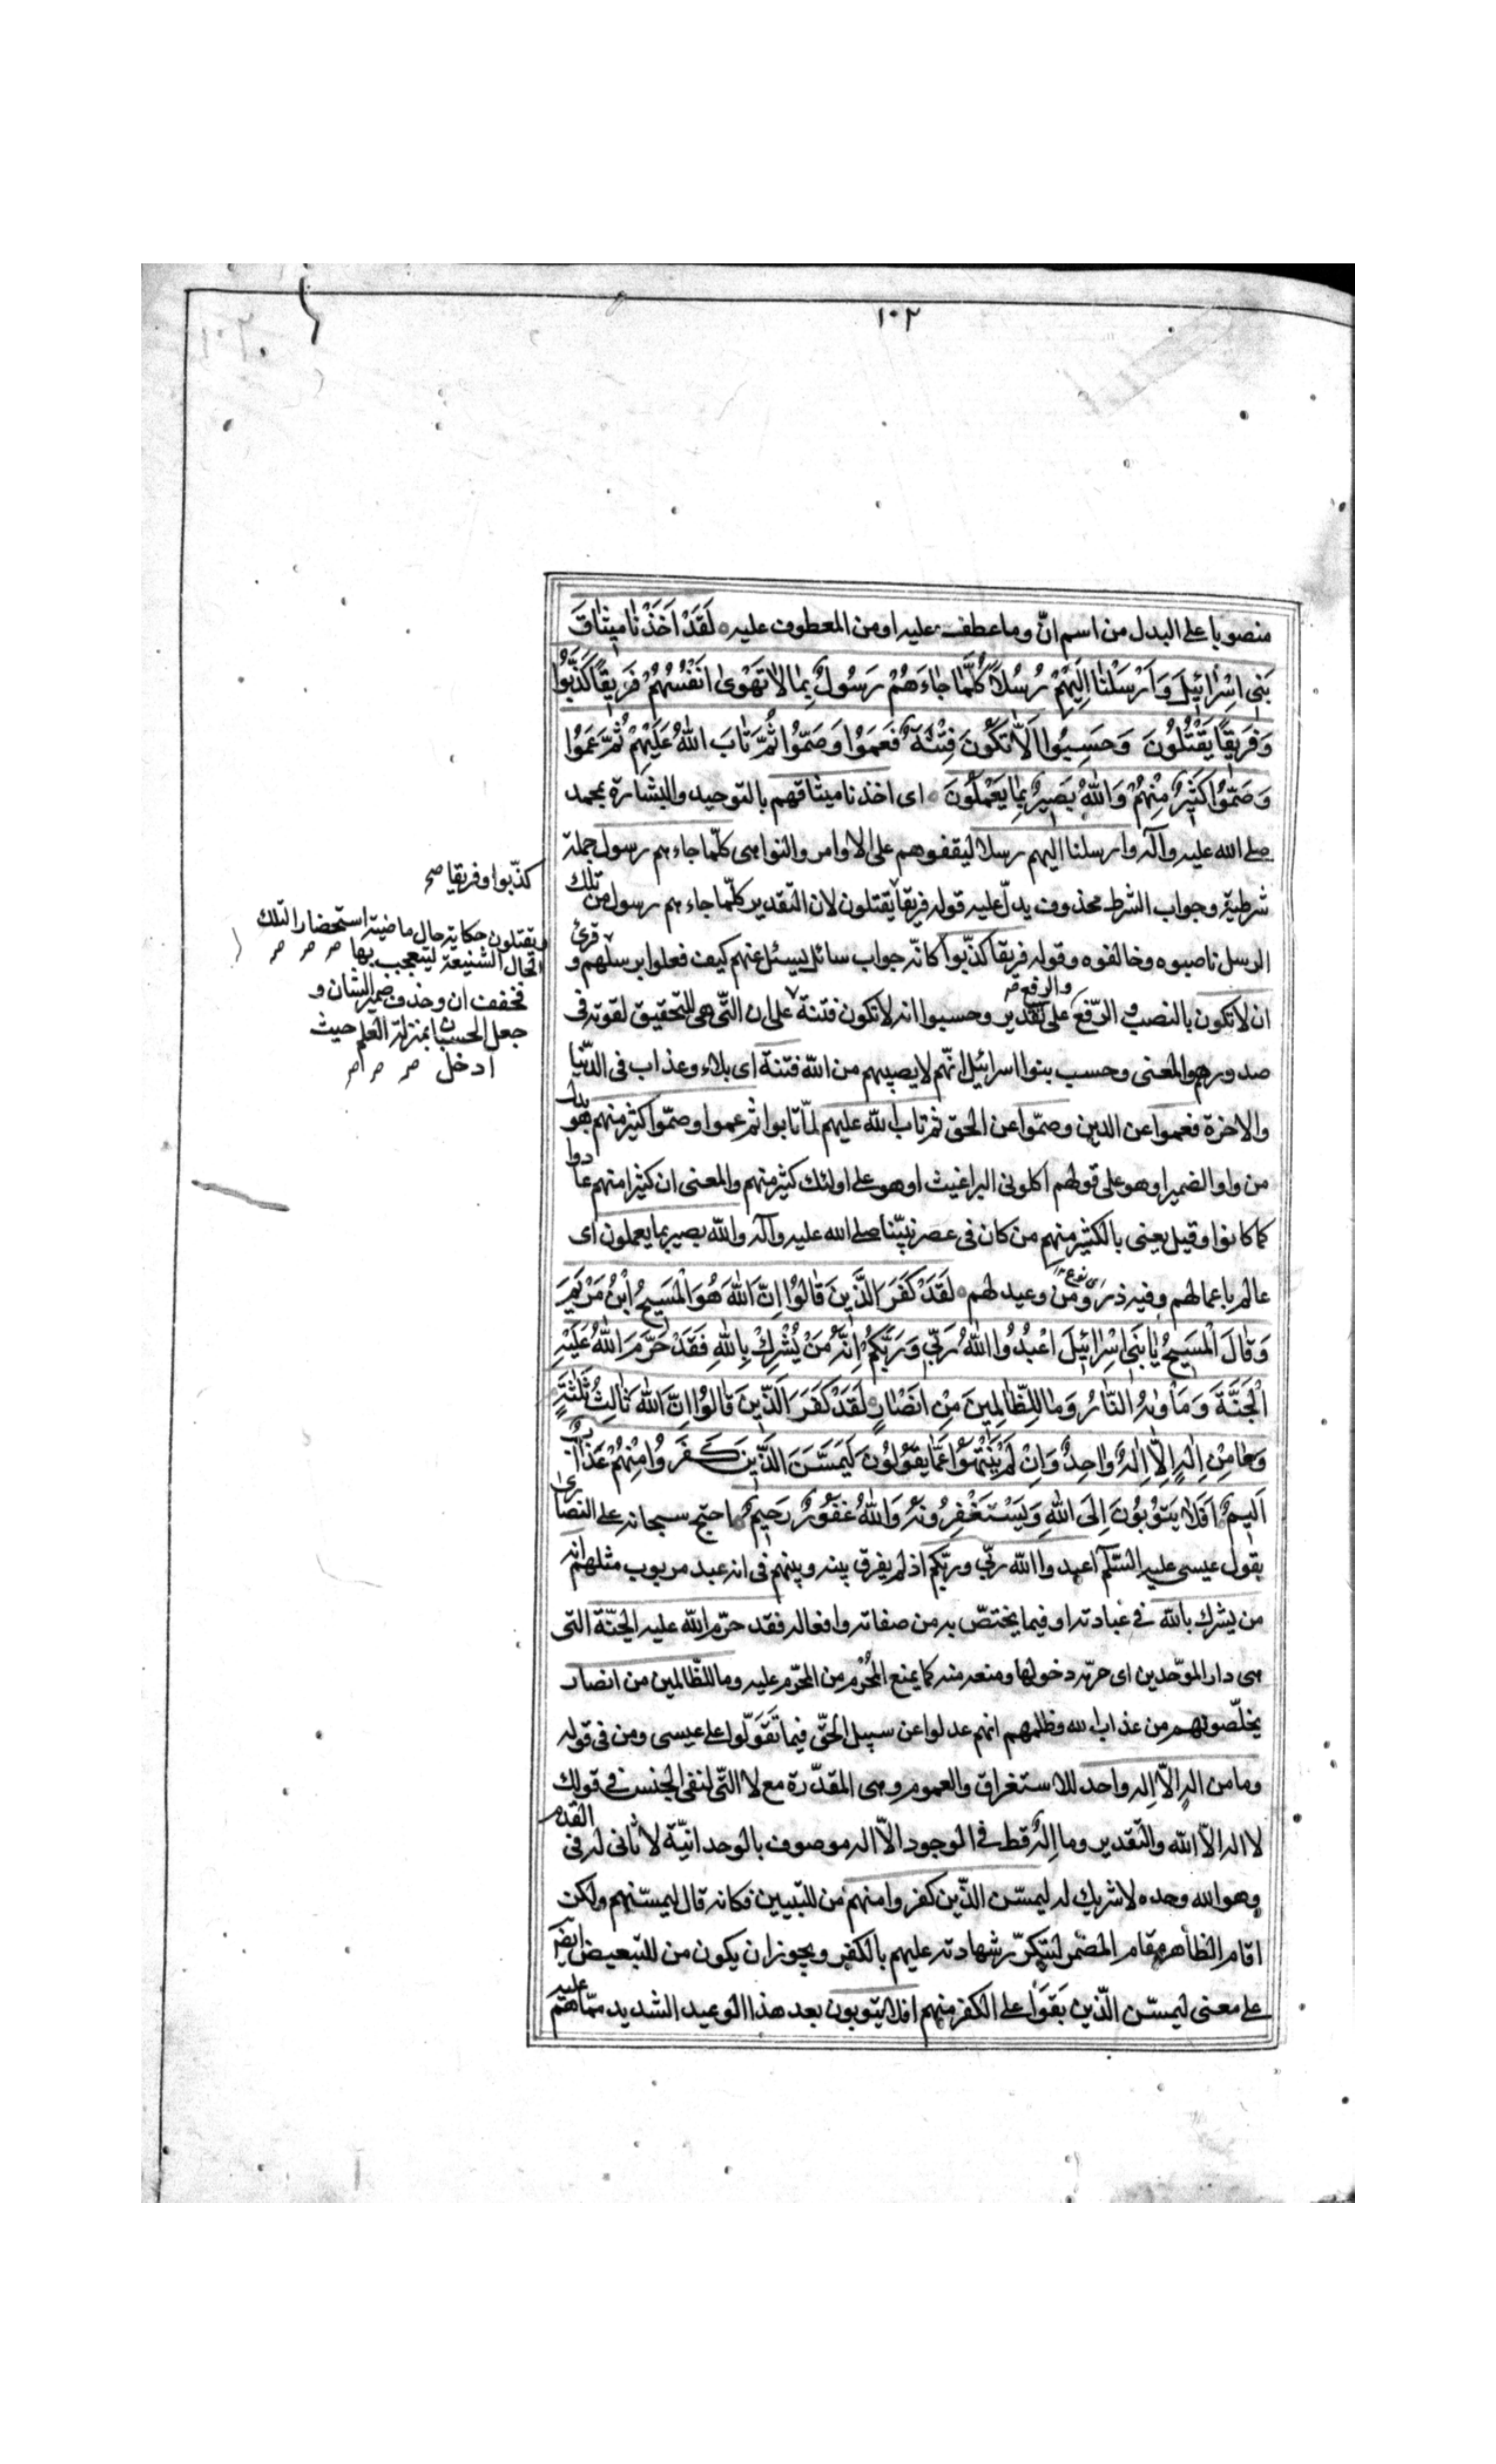 ١٠٢
منصوبا على البدل من اسم انّ وما عطف عليه او من المعطوف عليه ۝ لَقَدْ اَخَذْنٰا مِيثٰاقَ
بَنِي اِسْرٰائِيلَ وَاَرْسَلْنٰا اِلَيْهِمْ رُسُلاً كُلَّمٰا جٰاءَهُمْ رَسُولٌ بِمٰا لاٰ تَهْوىٰ اَنْفُسُهُمْ فَرِيقًا كَذَّبُوا
وَفَرِيقًا يَقْتُلُونَ وَحَسِبُوا اَلاّٰ تَكُونَ فِتْنَةٌ فَعَمُوا وَصَمُّوا ثُمَّ تٰابَ اللهُ عَلَيْهِمْ ثُمَّ عَمُوا
وَصَمُّوا كَثِيرٌ مِنْهُمْ وَاللهُ بَصِيرٌ بِمٰا يَعْمَلُونَ ۝ اى اخذنا ميثاقهم بالتوحيد والبشارة بمحمد
صلى الله عليه وآله وارسلنا اليهم رسلا ليقفوهم على الاوامر والنواهى كلّما جاءهم رسول جملة
شرطية وجواب الشرط محذوف يدلّ عليه قوله فريقا يقتلون لان التقدير كلّما جاءهم رسول من تلك
الرسل ناصبوه وخالفوه وقوله فريقا كذّبوا كانّه جواب سائل يسئل عنهم كيف فعلوا برسلهم و قرئ
ان لا تكون بالنصب و الرّفع على تقدير وحسبوا انه لا تكون فتنة على ان التّى هى للتحقيق لقوته فى
والرفع
صدورهم والمعنى وحسب بنوا اسرائيل انّهم لا يصيبهم من اللّه فتنة اى بلاء وعذاب فى الدّنيا
والاخرة فعموا عن الدين وصمّوا عن الحق ثم تاب الله عليهم لمّا تابوا ثم عموا وصمّوا كثير منهم هو بدل
من واو الضمير او هو على قولهم اكلونى البراغيث او هو على اولئك كثير منهم والمعنى ان كثيرا منهم عادوا
كما كانوا وقيل يعنى بالكثير منهم من كان فى عصر نبيّنا صلى الله عليه وآله واللّه بصير بما يعملون اى
عالم باعمالهم وفيه نوع من وعيد لهم ۝ لَقَدْ كَفَرَ الَّذِينَ قٰالُوا اِنَّ اللهَ هُوَ الْمَسِيحُ ابْنُ مَرْيَمَ
وَقٰالَ الْمَسِيحُ يٰا بَنِي اِسْرٰائِيلَ اعْبُدُوا اللهَ رَبِّي وَرَبَّكُمْ اِنَّهُ مَنْ يُشْرِكْ بِاللهِ فَقَدْ حَرَّمَ اللهُ عَلَيْهِ
الْجَنَّةَ وَمَأْوٰهُ النّٰارُ وَمٰا لِلظّٰالِمِينَ مِنْ اَنْصٰارٍ ۝ لَقَدْ كَفَرَ الَّذِينَ قٰالُوا اِنَّ اللهَ ثٰالِثُ ثَلٰثَةٍ
وَمٰا مِنْ اِلٰهٍ اِلاّٰ اِلٰهٌ وٰاحِدٌ وَاِنْ لَمْ يَنْتَهُوا عَمّٰا يَقُولُونَ لَيَمَسَّنَّ الَّذِينَ كَفَرُوا مِنْهُمْ عَذٰابٌ
اَلِيمٌ ۝ اَفَلاٰ يَتُوبُونَ اِلَى اللهِ وَيَسْتَغْفِرُونَهُ وَاللهُ غَفُورٌ رَحِيمٌ ۝ احتج سبحانه على النصارى
بقول عيسى عليه السّلم اعبدوا اللّه ربّى وربّكم اذ لم يفرق بينه وبينهم فى انه عبد مربوب مثلهم انه
من يشرك بالله فى عبادته او فيما يختصّ به من صفاته وافعاله فقد حرّم اللّه عليه الجنّة التى
هى دار الموّحدين اى حرّمه دخولها ومنعه منه كما يمنع المحرّم من المحرّم عليه وما للظّالمين من انصار
يخلّصونهم من عذاب الله وظلمهم انهم عدلوا عن سبيل الحقّ فيما تَقَوَّلُوا على عيسى ومن فى قوله
وما من اله الاّ اله واحد للاستغراق والعموم وهى المقدّرة مع لا التّى لنفى الجنس فى قولك
لا اله الاّ اللّه والتقدير وما اِلهٌ قط فى الوجود الاّ اله موصوف بالوحدانيّة لا ثانى له فى القدم
وهو الله وحده لا شريك له ليمسّن الذّين كفروا منهم من للتبيين فكانه قال ليمسّنهم ولكن
اقام الظاهر مقام المضمر ليتكرّر شهادته عليهم بالكفر ويجوز ان يكون من للتبعيض ايض
على معنى ليمسّن الّذين بَقَوا على الكفر منهم افلا يتوبون بعد هذا الوعيد الشديد ممّا هم عليه
كذّبوا وفريقا صح
ويقتلون حكاية حال ماضية استحضارا لتلك
الحال الشنيعة ليتعجب بها
فخففت ان وحذف ضمير الشان و
جعل الحسبان بمنزلة العلم حيث
ادخل